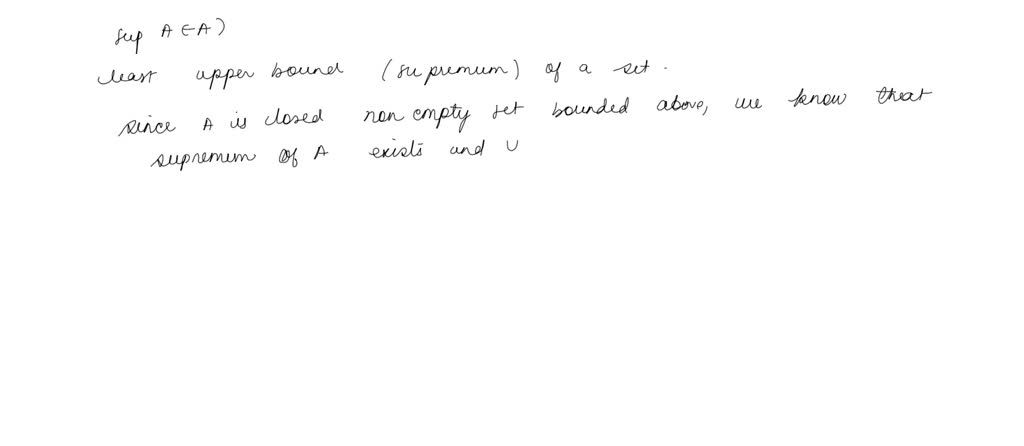 sup A ∈ A)
least upper bound (supremum) of a set.
since A is closed non empty set bounded above, we know that
supremum of A exists and U